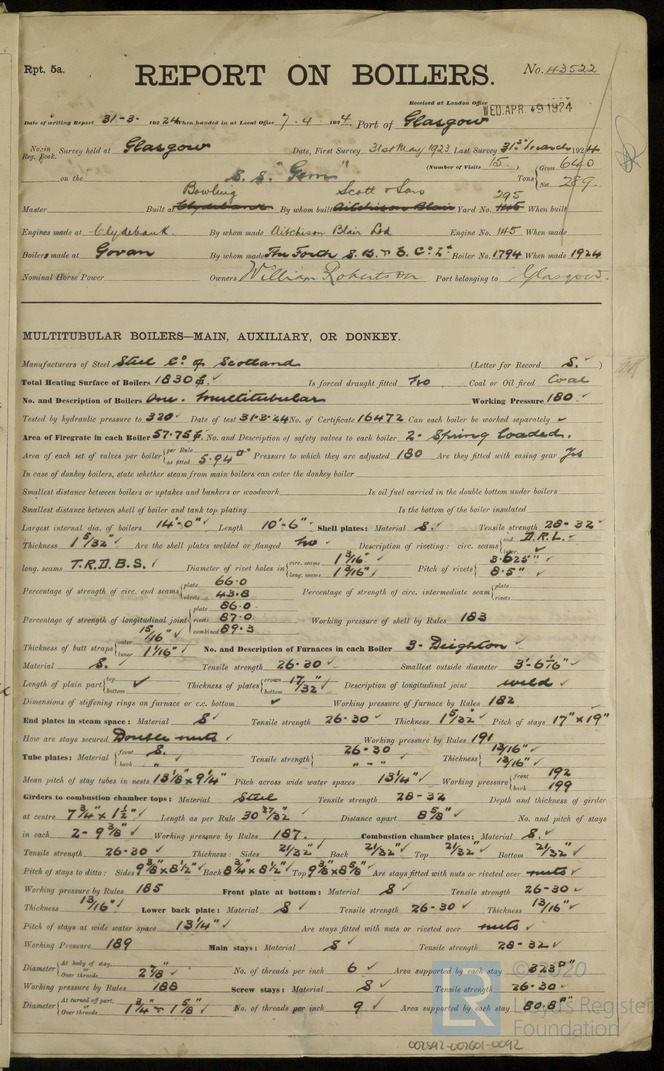 Rpt. 5a.
No. 43522
REPORT ON BOILERS.
Received at London Office WED. APR. 9 1924
Date of writing Report 31-3- 1924 When handed in at Local Office 7.4. 1924. Port of Glasgow
No. in Reg. Book. Survey held at Glasgow Date, First Survey 31st May 1923 Last Survey 31st March 1924
(Number of Visits 15)
on the S.S. "Gem" Tons { Gross 640 Net 289.
Bowling Scott & Sons 295
Master Built at Clydebank By whom built Aitchison Blair Yard No. 145 When built
Engines made at Clydebank. By whom made Aitchison Blair Ltd Engine No. 145 When made
Boilers made at Govan By whom made The Forth S.B. & E. Co. Ld. Boiler No. 1794 When made 1924
Nominal Horse Power Owners William Robertson Port belonging to Glasgow.
MULTITUBULAR BOILERS—MAIN, AUXILIARY, OR DONKEY.
Manufacturers of Steel Steel Co. of Scotland (Letter for Record S. ✓)
Total Heating Surface of Boilers 1830 ✓ Is forced draught fitted No Coal or Oil fired Coal
No. and Description of Boilers One. Multitubular Working Pressure 180 ✓
Tested by hydraulic pressure to 320 ✓ Date of test 31.3.24 No. of Certificate 16472 Can each boiler be worked separately ✓
Area of Firegrate in each Boiler 57.75 No. and Description of safety valves to each boiler 2- Spring loaded.
Area of each set of valves per boiler { per Rule as fitted 5.94" Pressure to which they are adjusted 180 Are they fitted with easing gear Yes
In case of donkey boilers, state whether steam from main boilers can enter the donkey boiler
Smallest distance between boilers or uptakes and bunkers or woodwork Is oil fuel carried in the double bottom under boilers
Smallest distance between shell of boiler and tank top plating Is the bottom of the boiler insulated
Largest internal dia. of boilers 14'-0" ✓ Length 10'-6" ✓ Shell plates: Material S. ✓ Tensile strength 28-32 ✓
Thickness 1 5/32" ✓ Are the shell plates welded or flanged No ✓ Description of riveting: circ. seams { end D.R.L. ✓ inter. ✓
long. seams T.R.D.B.S. ✓ Diameter of rivet holes in { circ. seams 1 3/16" ✓ long. seams 1 3/16" ✓ Pitch of rivets { 3.625" ✓ 8.5" ✓
Percentage of strength of circ. end seams { plate 66.0 rivets 43.8 Percentage of strength of circ. intermediate seam { plate rivets
Percentage of strength of longitudinal joint { plate 86.0 rivets 87.0 combined 89.3 Working pressure of shell by Rules 183
Thickness of butt straps { outer 15/16" ✓ inner 1 1/16" ✓ No. and Description of Furnaces in each Boiler 3- Deighton ✓
Material S. ✓ Tensile strength 26-30 ✓ Smallest outside diameter 3'-6 1/16" ✓
Length of plain part { top bottom ✓ Thickness of plates { crown bottom 17/32" ✓ Description of longitudinal joint weld ✓
Dimensions of stiffening rings on furnace or c.c. bottom ✓ Working pressure of furnace by Rules 182
End plates in steam space: Material S ✓ Tensile strength 26-30 ✓ Thickness 1 5/32" ✓ Pitch of stays 17" x 19"
How are stays secured Double nuts ✓ Working pressure by Rules 191
Tube plates: Material { front S. ✓ back " Tensile strength { 26-30 " - " ✓ Thickness { 13/16" ✓ 13/16" ✓
Mean pitch of stay tubes in nests 13 1/8" x 9 1/4" Pitch across wide water spaces 13 1/4" ✓ Working pressure { front 192 back 199
Girders to combustion chamber tops: Material Steel Tensile strength 28-32 Depth and thickness of girder
at centre 7 3/4" x 1 1/2" ✓ Length as per Rule 30 27/32" ✓ Distance apart 8 5/8" ✓ No. and pitch of stays
in each 2- 9 3/8" ✓ Working pressure by Rules 187. Combustion chamber plates: Material S. ✓
Tensile strength 26-30 ✓ Thickness: Sides 21/32" ✓ Back 21/32" ✓ Top 21/32" ✓ Bottom 21/32" ✓
Pitch of stays to ditto: Sides 9 3/8" x 8 1/2" ✓ Back 8 3/4" x 8 1/2" ✓ Top 9 3/8" x 8 5/8" ✓ Are stays fitted with nuts or riveted over nuts ✓
Working pressure by Rules 185 Front plate at bottom: Material S ✓ Tensile strength 26-30 ✓
Thickness 13/16" ✓ Lower back plate: Material S ✓ Tensile strength 26-30 ✓ Thickness 13/16" ✓
Pitch of stays at wide water space 13 1/4" ✓ Are stays fitted with nuts or riveted over nuts ✓
Working Pressure 189 Main stays: Material S ✓ Tensile strength 28-32 ✓
Diameter { At body of stay, or Over threads 2 7/8" ✓ No. of threads per inch 6 ✓ Area supported by each stay 323"
Working pressure by Rules 188 Screw stays: Material S ✓ Tensile strength 26-30 ✓
Diameter { At turned off part, or Over threads 1 3/4" & 1 5/8" ✓ No. of threads per inch 9 ✓ Area supported by each stay 80.8"
© 2020
Lloyd's Register
Foundation
LR
002592-002601-0092